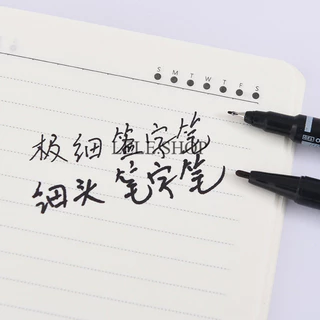 S M T W T F S
极细签字笔
细头 笔字笔